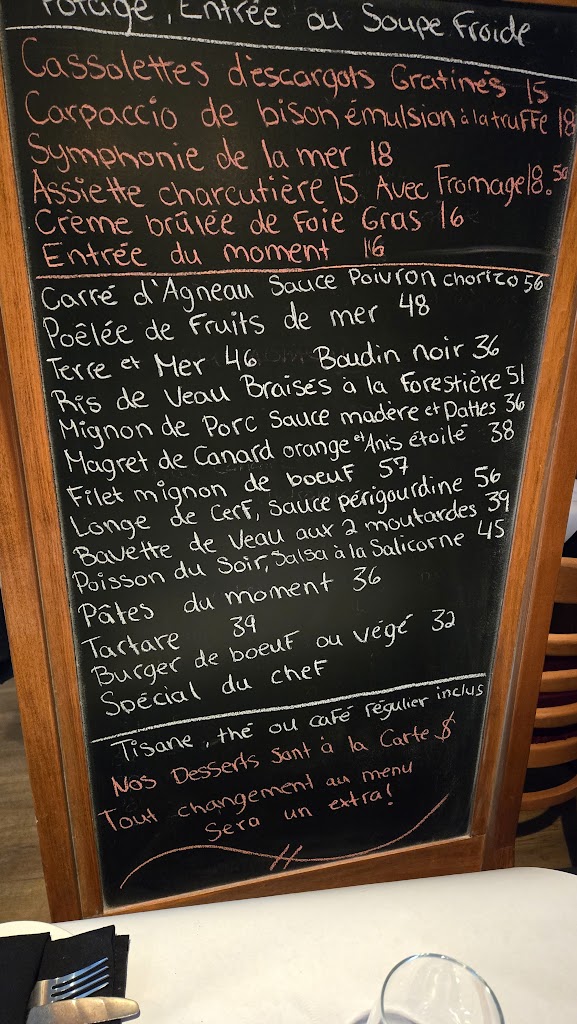 Potage, Entrée ou Soupe Froide
Cassolettes d'escargots Gratinés 15
Carpaccio de bison émulsion à la truffe 18
Symphonie de la mer 18
Assiette charcutière 15 Avec Fromage 18.50
Crème brûlée de Foie Gras 16
Entrée du moment 16
Carré d'Agneau Sauce Poivron chorizo 56
Poêlée de Fruits de mer 48
Terre et Mer 46 Boudin noir 36
Ris de Veau Braisés à la Forestière 51
Mignon de Porc Sauce madère et Dattes 36
Magret de Canard orange et Anis étoilé 38
Filet mignon de boeuf 57
Longe de Cerf, Sauce périgourdine 56
Bavette de Veau aux 2 moutardes 39
Poisson du Soir, Salsa à la Salicorne 45
Pâtes du moment 36
Tartare 39
Burger de boeuf ou végé 32
Spécial du chef
Tisane, thé ou café régulier inclus
Nos Desserts Sont à la Carte $
Tout changement au menu
Sera un extra!